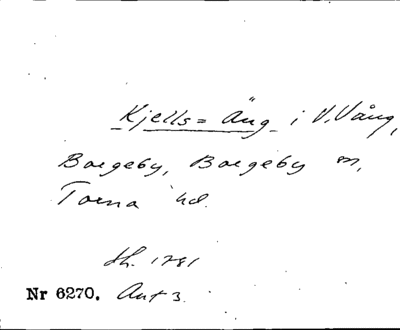 Kjells=Äng i V. Vång,
Borgeby, Borgeby sn,
Torna hd.
Sk. 1781
Nr 6270. Akt 3.